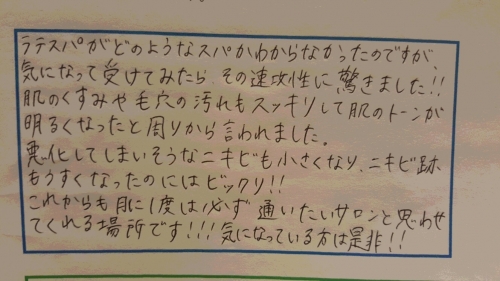 ラテスパがどのようなスパかわからなかったのですが、
気になって受けてみたら、その速攻性に驚きました!!
肌のくすみや毛穴の汚れもスッキリして肌のトーンが
明るくなったと周りから言われました。
悪化してしまいそうなニキビも小さくなり、ニキビ跡
もうすくなったのにはビックリ!!
これからも月に1度は必ず通いたいサロンと思わせ
てくれる場所です!!!気になっている方は是非!!